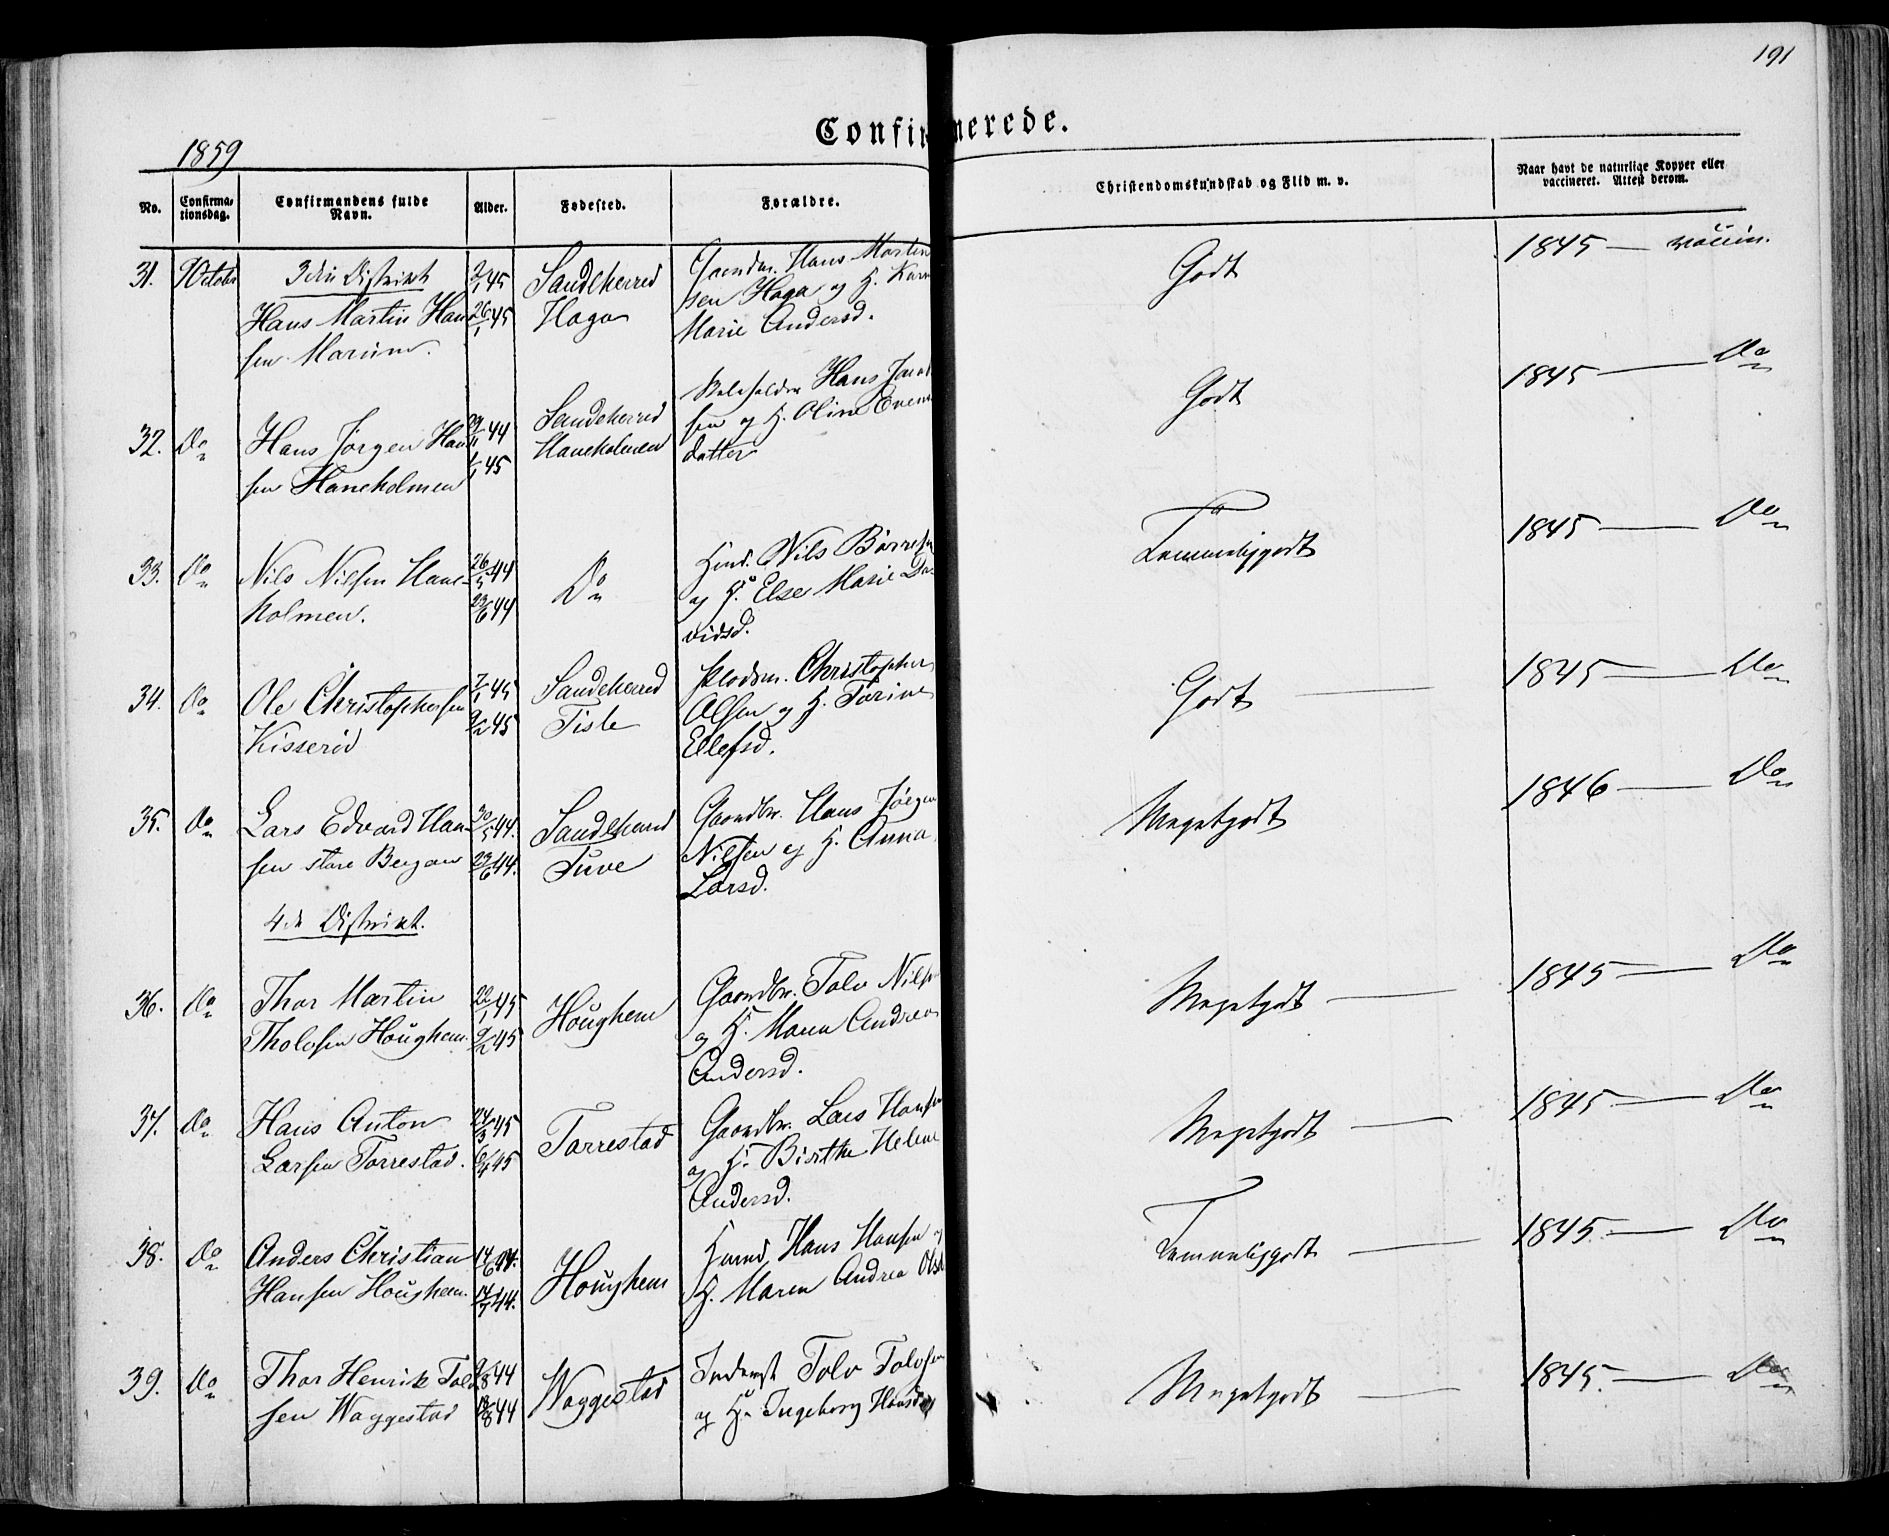 191
1859
Confirmerede.
No.
Confirma-
tionsdag.
Confirmandens fulde
Navn.
Alder.
Fødested.
Forældre.
Christendomskundskab og Flid m. v.
Naar havt de naturlige Kopper eller
vaccineret. Attest derom.
31. October
3die Distrikt
Hans Martin Han
sen
2/1 45
26/1 45
Sandeherred
Haga
Hans Martin
sen Haga og H. Karn
Marie Andersd.
Godt
1845 — vaccin.
32. Do
Hans Jørgen Han
sen Haneholmen
44
1/1 45
Sandeherred
Haneholmen
Hans Jacob
sen og H. Oline Evens
datter
Godt
1845 — Do
33. Do
Nils Nilsen Hane-
holmen.
26/5 44
23/6 44
Do
Nils Børresen
og H. Else Marie Da-
vidsd.
Temmeligodt
1845 — Do
34. Do
Ole Christophersen
Kisserød
7/1 45
9/2 45
Sandeherred
Tisle
Pladsm. Christopher
Olsen og H. Torine
Ellefsd.
Godt —
1845 — Do
35. Do
Lars Edvard Han-
sen store Bergan
30/5 44.
23/6 44.
Sandeherred
Tuve
Gaardbr. Hans Jørgen
Nilsen og H. Anna
Larsd.
Megetgodt
1846 — Do
4de Distrikt.
36. Do
Thor Martin
Tholvsen Houghem
22/1 45
9/2 45
Houghem
Gaardbr. Tolv Nilsen
og H. Maren Andrea
Andersd.
Megetgodt —
1845 — Do
37. Do
Hans Anton
Larsen Torrestad.
24/3 45
6/4 45
Torrestad
Gaardbr. Lars Hansen
og H. Birthe Helene
Andersd.
Megetgodt —
1845 — Do
38. Do
Anders Christian
Hansen Houghem
14/6 44.
14/7 44.
Houghem
Hans Hansen og
H. Maren Andrea Olsd
Temmeligodt —
1845. — Do
39. Do
Thor Henrik Tolv
sen Waggestad
44
18/8 44
Waggestad
Inderst Tolv Tolvsen
og H. Ingeborg Hansd
Megetgodt —
1845. — Do